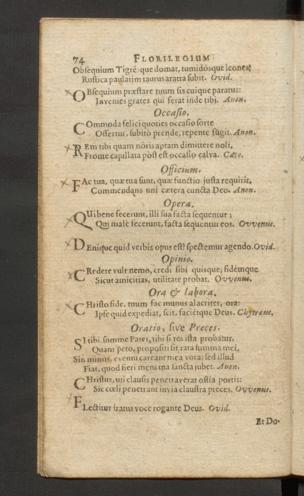 74 FLORILEGIUM
Obsequium Tigrê-que domat, tumidósque leones;
Rustica paulatim taurus aratra subit. Ovid.
OBsequium præstare tuum sis cuique paratus:
Invenies grates qui ferat inde tibi. Anon.
Occasio.
COmmoda felici quoties occasio sorte
Offertur, subitò prende, repente fugit. Anon.
REm tibi quam nôris aptam dimittere noli,
Fronte capillata pòst est occasio calva. Cato.
Officium.
FAc tua, quæ tua sunt, quæ functio justa requirit,
Commendans uni cætera cuncta Deo. Anon.
Opera.
QUi bene fecerunt, illi sua facta sequentur;
Qui malè fecerunt, facta sequentur eos. Owenus.
DEnique quid verbis opus est? spectemur agendo. Ovid.
Opinio.
CRedere vult nemo, credi sibi quisque; fidémque
Sicut amicitias, utilitate probat. Owenus.
Ora & labora.
CHristo fide, tuum fac munus alacriter, ora:
Ipse quid expediat, scit, faciétque Deus. Chytræus.
Oratio, sive Preces.
SI tibi, summe Pater, tibi si res ista probatur,
Quam peto, propositi sit rata summa mei,
Sin minus, eventu careant mea vota: sed illud
Fiat, quod fieri mens tua sancta jubet. Anon.
CHristus, uti clausis penetraverat ostia portis:
Sic cœli penetrant invia claustra preces. Owenus.
FLectitur iratus voce rogante Deus. Ovid.
Et Do-